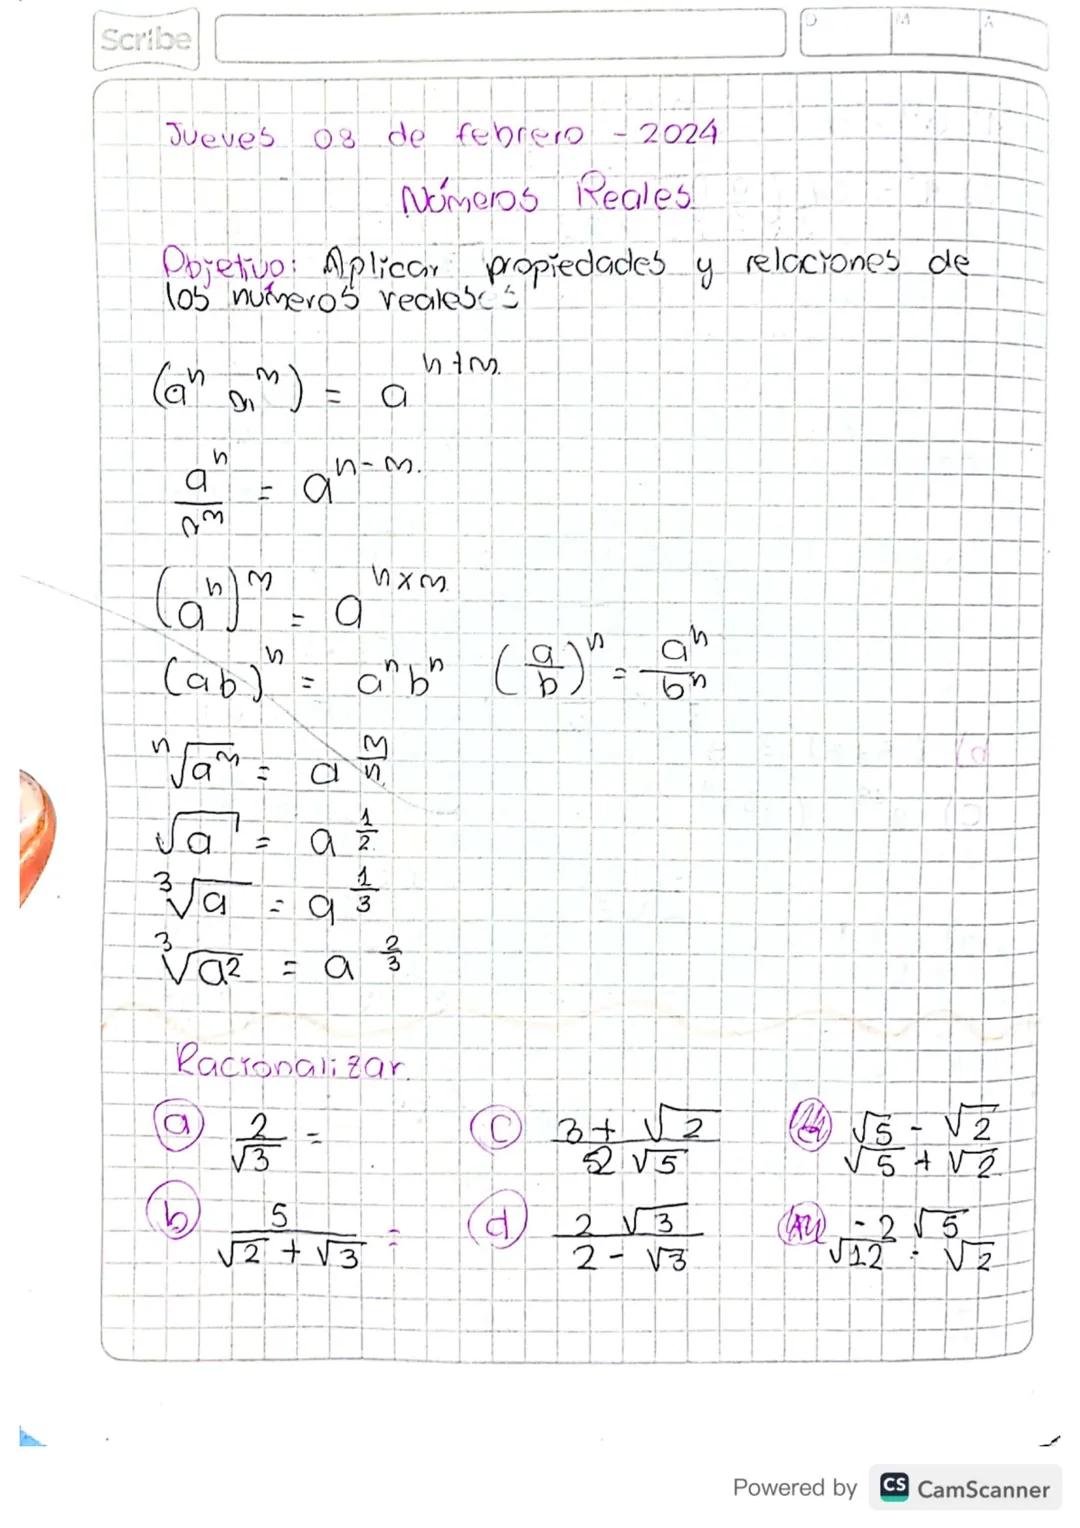 Scribe
D M A
Jueves 08 de febrero - 2024
Números Reales
Objetivo: Aplicar propiedades y relaciones de
los números reales
(aⁿ aᵐ) = aⁿ⁺ᵐ
aⁿ/aᵐ = aⁿ⁻ᵐ.
(aⁿ)ᵐ = aⁿˣᵐ
(ab)ⁿ = aⁿbⁿ (a/b)ⁿ = aⁿ/bⁿ
ⁿ√aᵐ = a^(m/n)
√a = a^(1/2)
³√a = a^(1/3)
³√a² = a^(2/3)
Racionalizar.
a 2/√3 = c (3 + √2)/(2√5) (√5 - √2)/(√5 + √2)
b 5/(√2 + √3) = d 2√3/(2 - √3) -2√5/(√12 - √2)
Powered by CS CamScanner